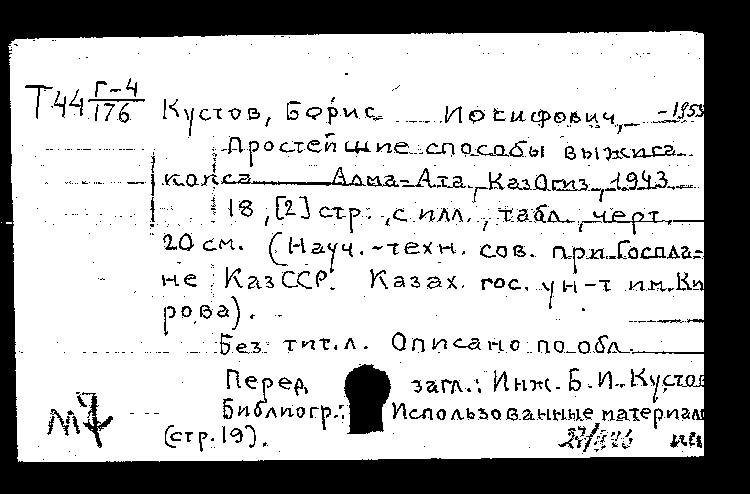 Т44 Г-4/176
Кустов, Борис Иосифович, -1953
Простейшие способы выжига
кокса Алма-Ата, КазОгиз, 1943
18, [2] стр., с илл., табл., черт.
20 см. (Науч.-техн. сов. при Госпла-
не КазССР. Казах. гос. ун-т им. Ки
рова).
Без тит. л. Описано по обл.
Перед загл.: Инж. Б. И. Кустов
Библиогр.: Использованные материал
(стр. 19).